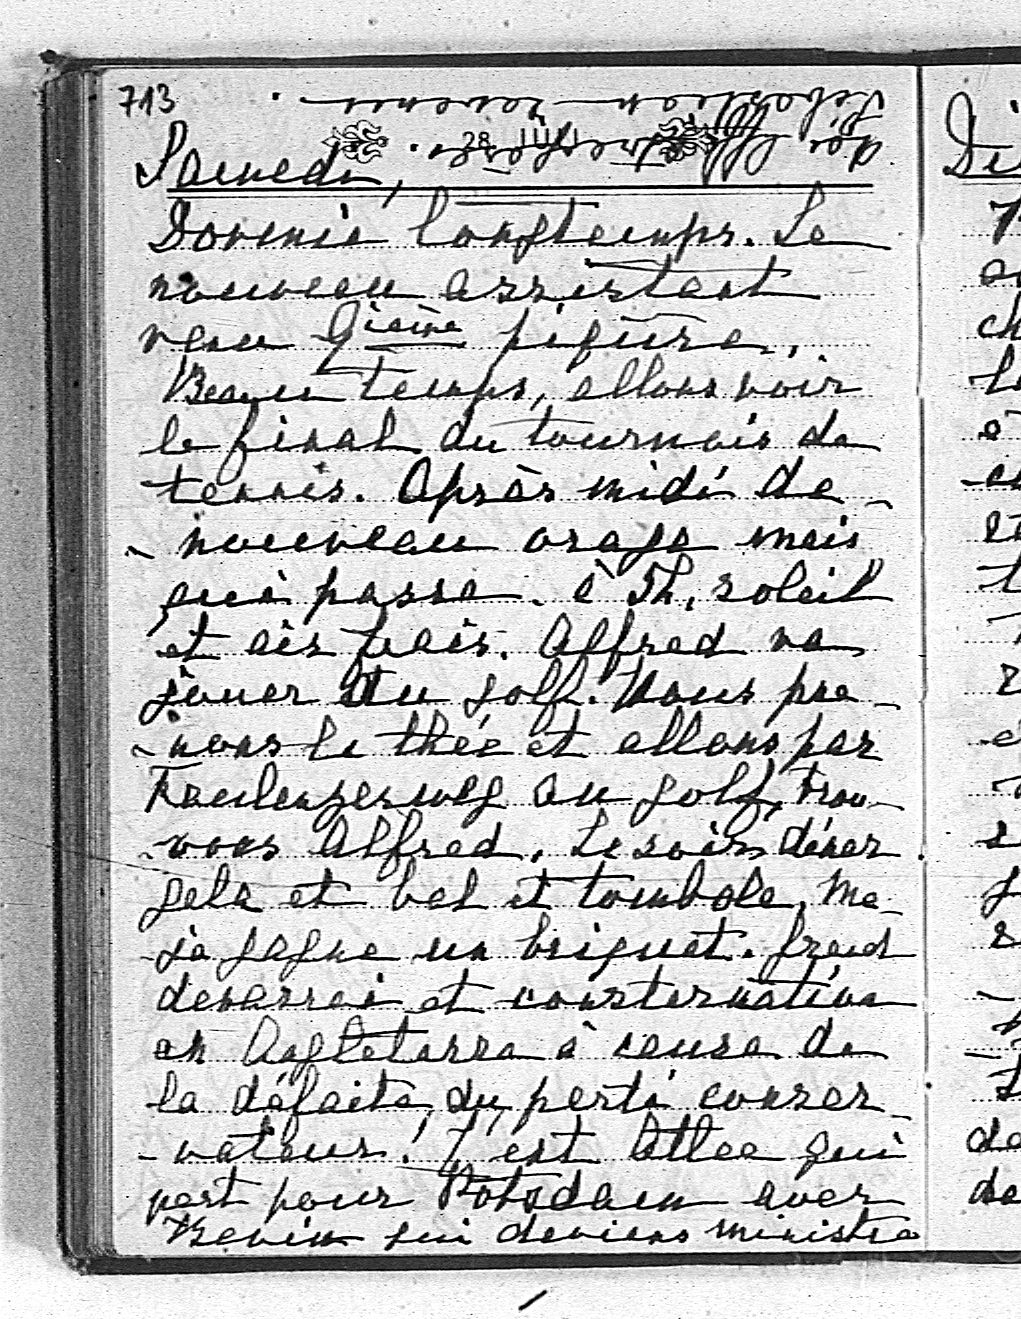 713
des affaires étrangères.
Sebastian revenu.
28 JUIN
Samedi,
Dormis longtemps. Le
nouveau assistant
venu 9ième piqûre.
Beau temps, allons voir
le final du tournois de
tennis. Après midi de
- nouveau orage mais
qui passe. à 5h. soleil
et air frais. Alfred va
jouer au golf. Nous pre-
- nons le thée et allons par
Faulenzerweg au golf, trou-
- vons Alfred. Le soir dîner
gala et bal et tombola. Me
- je gagne un briquet. Grand
desarroi et consternation
en Angleterre à cause de
la défaite du parti conser-
- vateur! C'est Atlee qui
part pour Potsdam avec
Bevin qui deviens ministre
Di